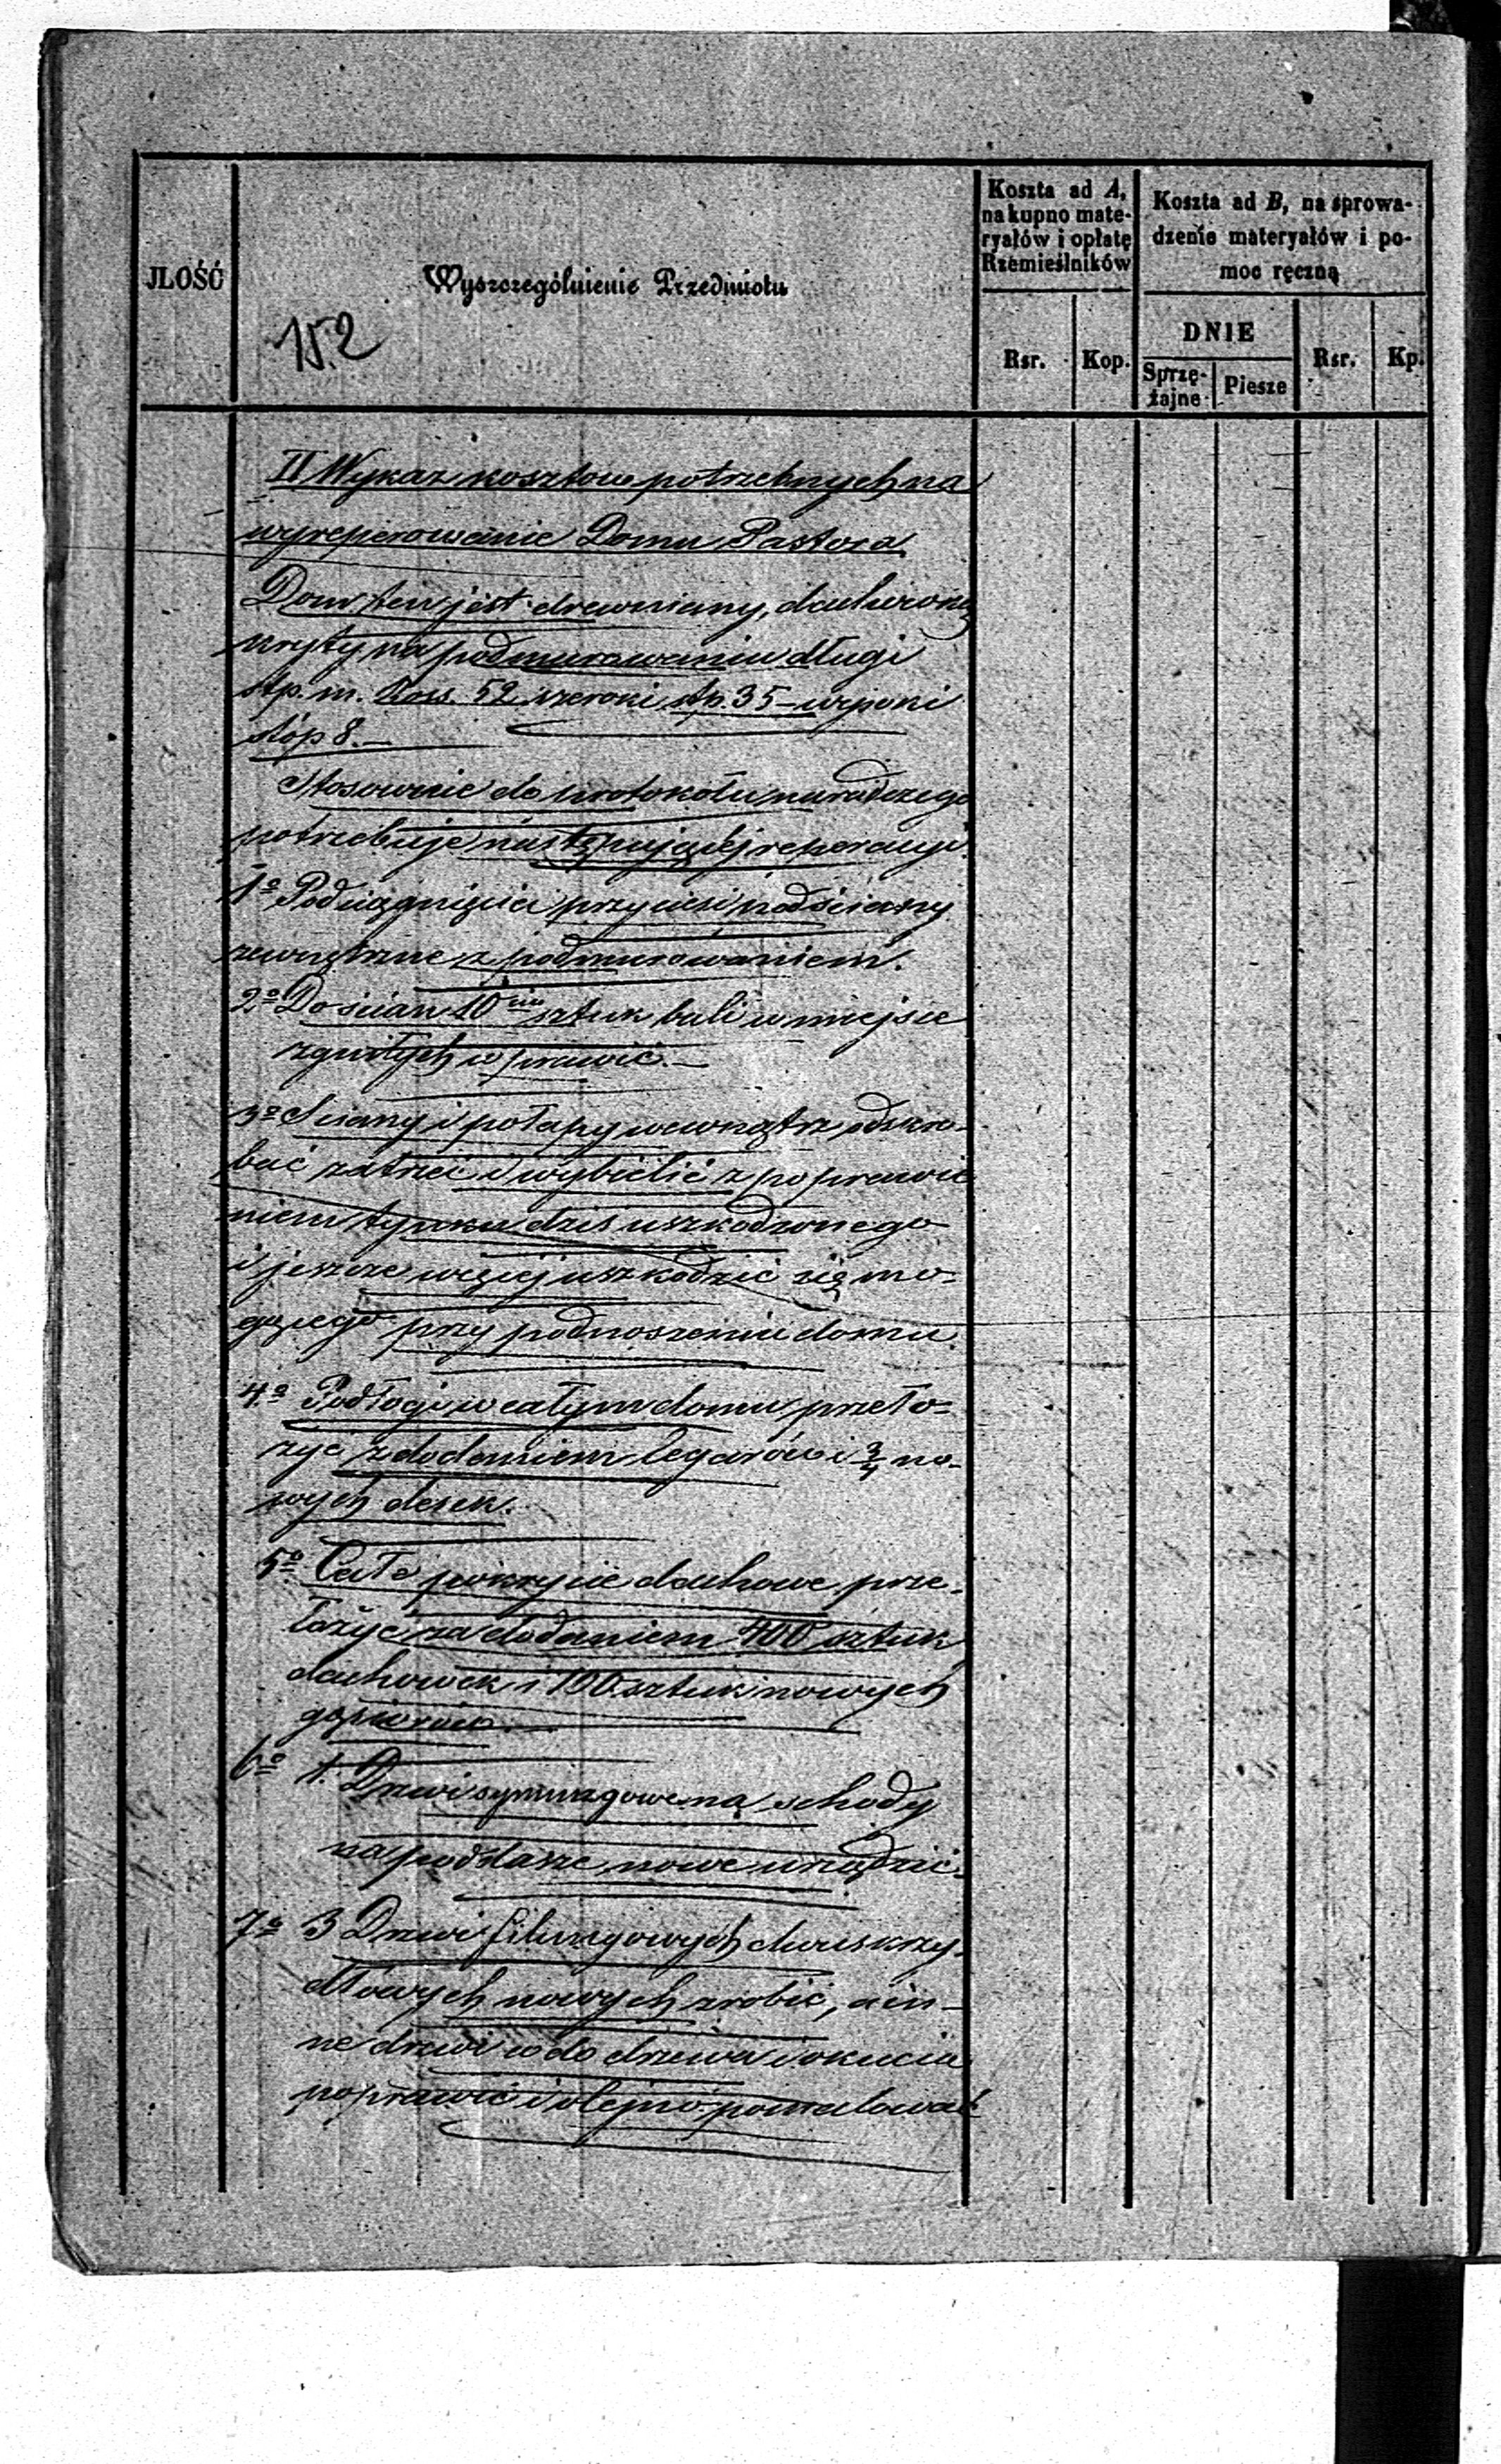 JLOŚĆ
Wyszczególnienie Przedmiotu
Koszta ad A,
na kupno mate-
ryałów i opłatę
Rzemieślników
Koszta ad B, na sprowa-
dzenie materyałów i po-
moc ręczną
DNIE
Rsr.
Kop.
Sprzę-
żajne
Piesze
Rsr.
Kp.
152
II Wykaz kosztow potrzebnych na
wyreperowanie Domu Pastora
Dom ten jest drewniany, dachówką
kryty na podmurowaniu długi
stp. m. Ross. 52 szeroki stp. 35 – wysoki
stóp 8.–
Stosownie do protokołu naradczego
potrzebuje następującej reperacyi.
1º Podciągnięcia przyciesi pod ściany
zewnętrzne z podmurowaniem.
2º Do ścian 10ciu sztuk bali w miejsce
zgniłych wprawić.–
3º Sciany i pułapy wewnątrz odskro-
bać zatrzeć i wybielić z poprawie
niem tynku dziś uszkodzonego
i jeszcze więcej uszkodzić się mo-
gącego przy podnoszeniu domu
4º Podłogi w całym domu przeło-
żyć z dodaniem legarów i 3/4 no-
wych desek.
5º Całe pokrycie dachowe prze-
łożyć za dodaniem 400 sztuk
dachówek i 100 sztuk nowych
gąsiorów.–
6º 1. Drzwi szpungowe na schody
na poddasze nowe urządzić.
7º 3 Drzwi filungowych dwuskrzy-
dłowych nowych zrobić, a in-
ne drzwi co do drzewa i okucia
poprawić i olejno pomalować